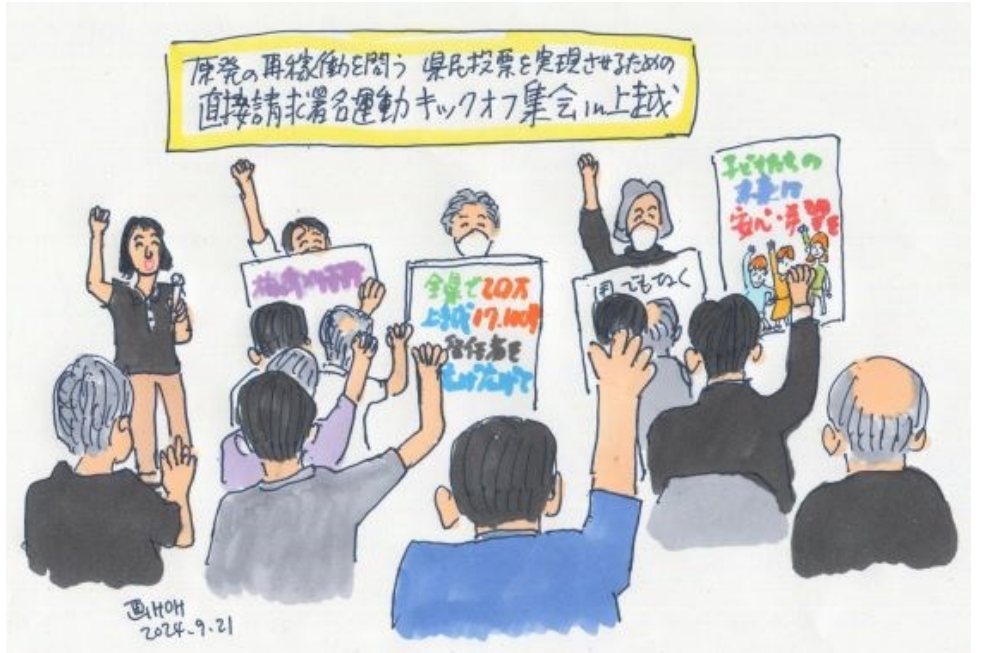 原発の再稼働を問う 県民投票を実現させるための
直接請求署名運動キックオフ集会 in 上越
全県で20万
上越17.100筆
受任者を
でもなく
子どもたちの
未来に
安心・希望を
画:HOH
2024.9.21